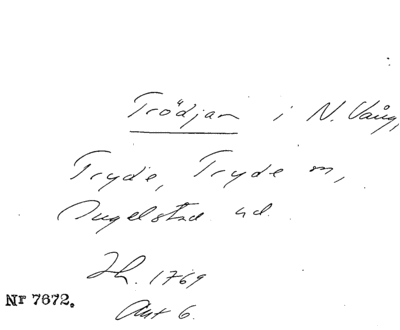 Trödjan i N. Vång,
Tryde, Tryde sn,
Ingelstad hd.
Zh. 1769
Akt 6.
Nr 7672.